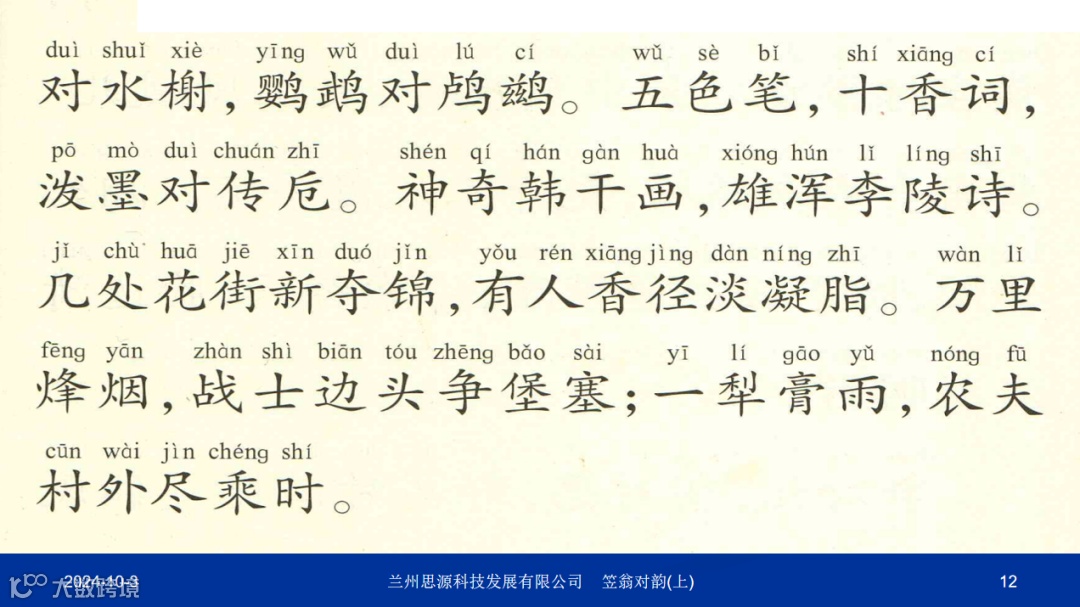 duì shuǐ xiè yīng wǔ duì lú cí wǔ sè bǐ shí xiāng cí
对水榭，鹦鹉对鸬鹚。五色笔，十香词，
pō mò duì chuán zhī shén qí hán gàn huà xióng hún lǐ líng shī
泼墨对传卮。神奇韩干画，雄浑李陵诗。
jǐ chù huā jiē xīn duó jǐn yǒu rén xiāng jìng dàn níng zhī wàn lǐ
几处花街新夺锦，有人香径淡凝脂。万里
fēng yān zhàn shì biān tóu zhēng bǎo sài yī lí gāo yǔ nóng fū
烽烟，战士边头争堡塞；一犁膏雨，农夫
cūn wài jìn chéng shí
村外尽乘时。
2024-10-3 兰州思源科技发展有限公司 笠翁对韵(上) 12
大数跨境